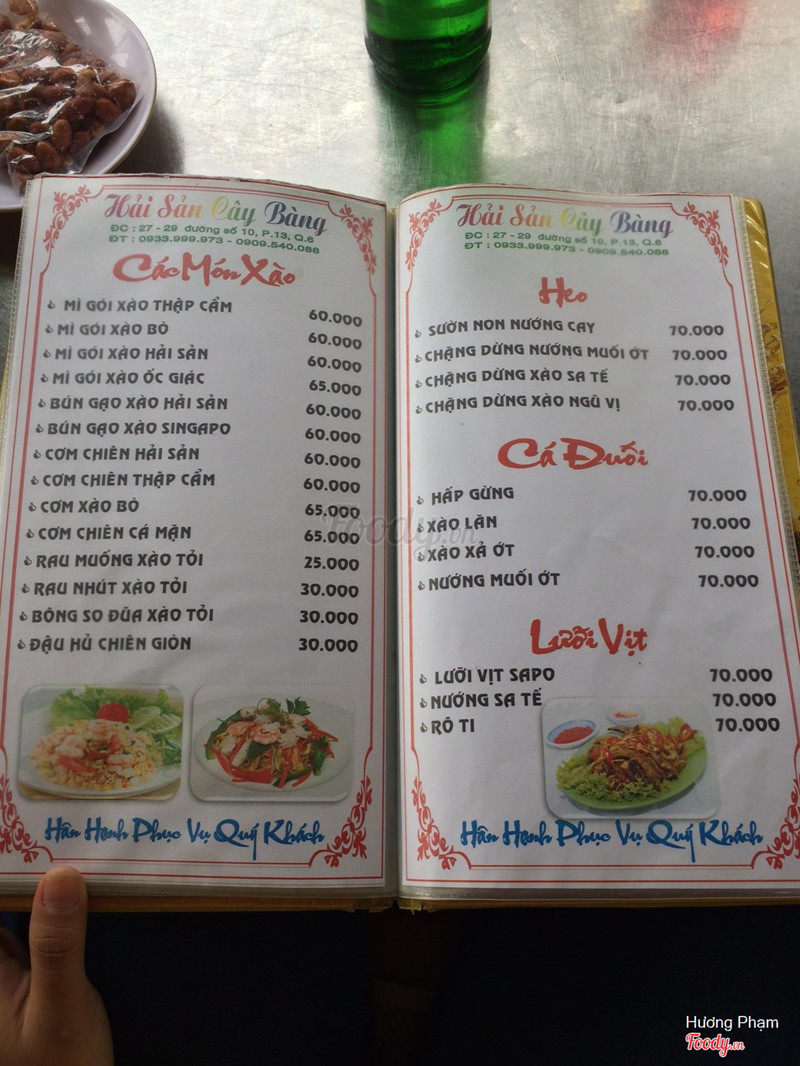 Hải Sản Cây Bàng
ĐC : 27 - 29 đường số 10, P.13, Q.6
ĐT : 0933.999.973 - 0909.540.088
Các Món Xào
MÌ GÓI XÀO THẬP CẨM 60.000
MÌ GÓI XÀO BÒ 60.000
MÌ GÓI XÀO HẢI SẢN 60.000
MÌ GÓI XÀO ỐC GIÁC 65.000
BÚN GẠO XÀO HẢI SẢN 60.000
BÚN GẠO XÀO SINGAPO 60.000
CƠM CHIÊN HẢI SẢN 60.000
CƠM CHIÊN THẬP CẨM 60.000
CƠM XÀO BÒ 65.000
CƠM CHIÊN CÁ MẶN 65.000
RAU MUỐNG XÀO TỎI 25.000
RAU NHÚT XÀO TỎI 30.000
BÔNG SO ĐŨA XÀO TỎI 30.000
ĐẬU HỦ CHIÊN GIÒN 30.000
Hân Hạnh Phục Vụ Quý Khách
Hải Sản Cây Bàng
ĐC : 27 - 29 đường số 10, P.13, Q.6
ĐT : 0933.999.973 - 0909.540.088
Heo
SƯỜN NON NƯỚNG CAY 70.000
CHẶNG DỪNG NƯỚNG MUỐI ỚT 70.000
CHẶNG DỪNG XÀO SA TẾ 70.000
CHẶNG DỪNG XÀO NGŨ VỊ 70.000
Cá Đuối
HẤP GỪNG 70.000
XÀO LĂN 70.000
XÀO XẢ ỚT 70.000
NƯỚNG MUỐI ỚT 70.000
Lưỡi Vịt
LƯỠI VỊT SAPO 70.000
NƯỚNG SA TẾ 70.000
RÔ TI 70.000
Hân Hạnh Phục Vụ Quý Khách
Foody.vn
Hương Phạm
Foody.vn